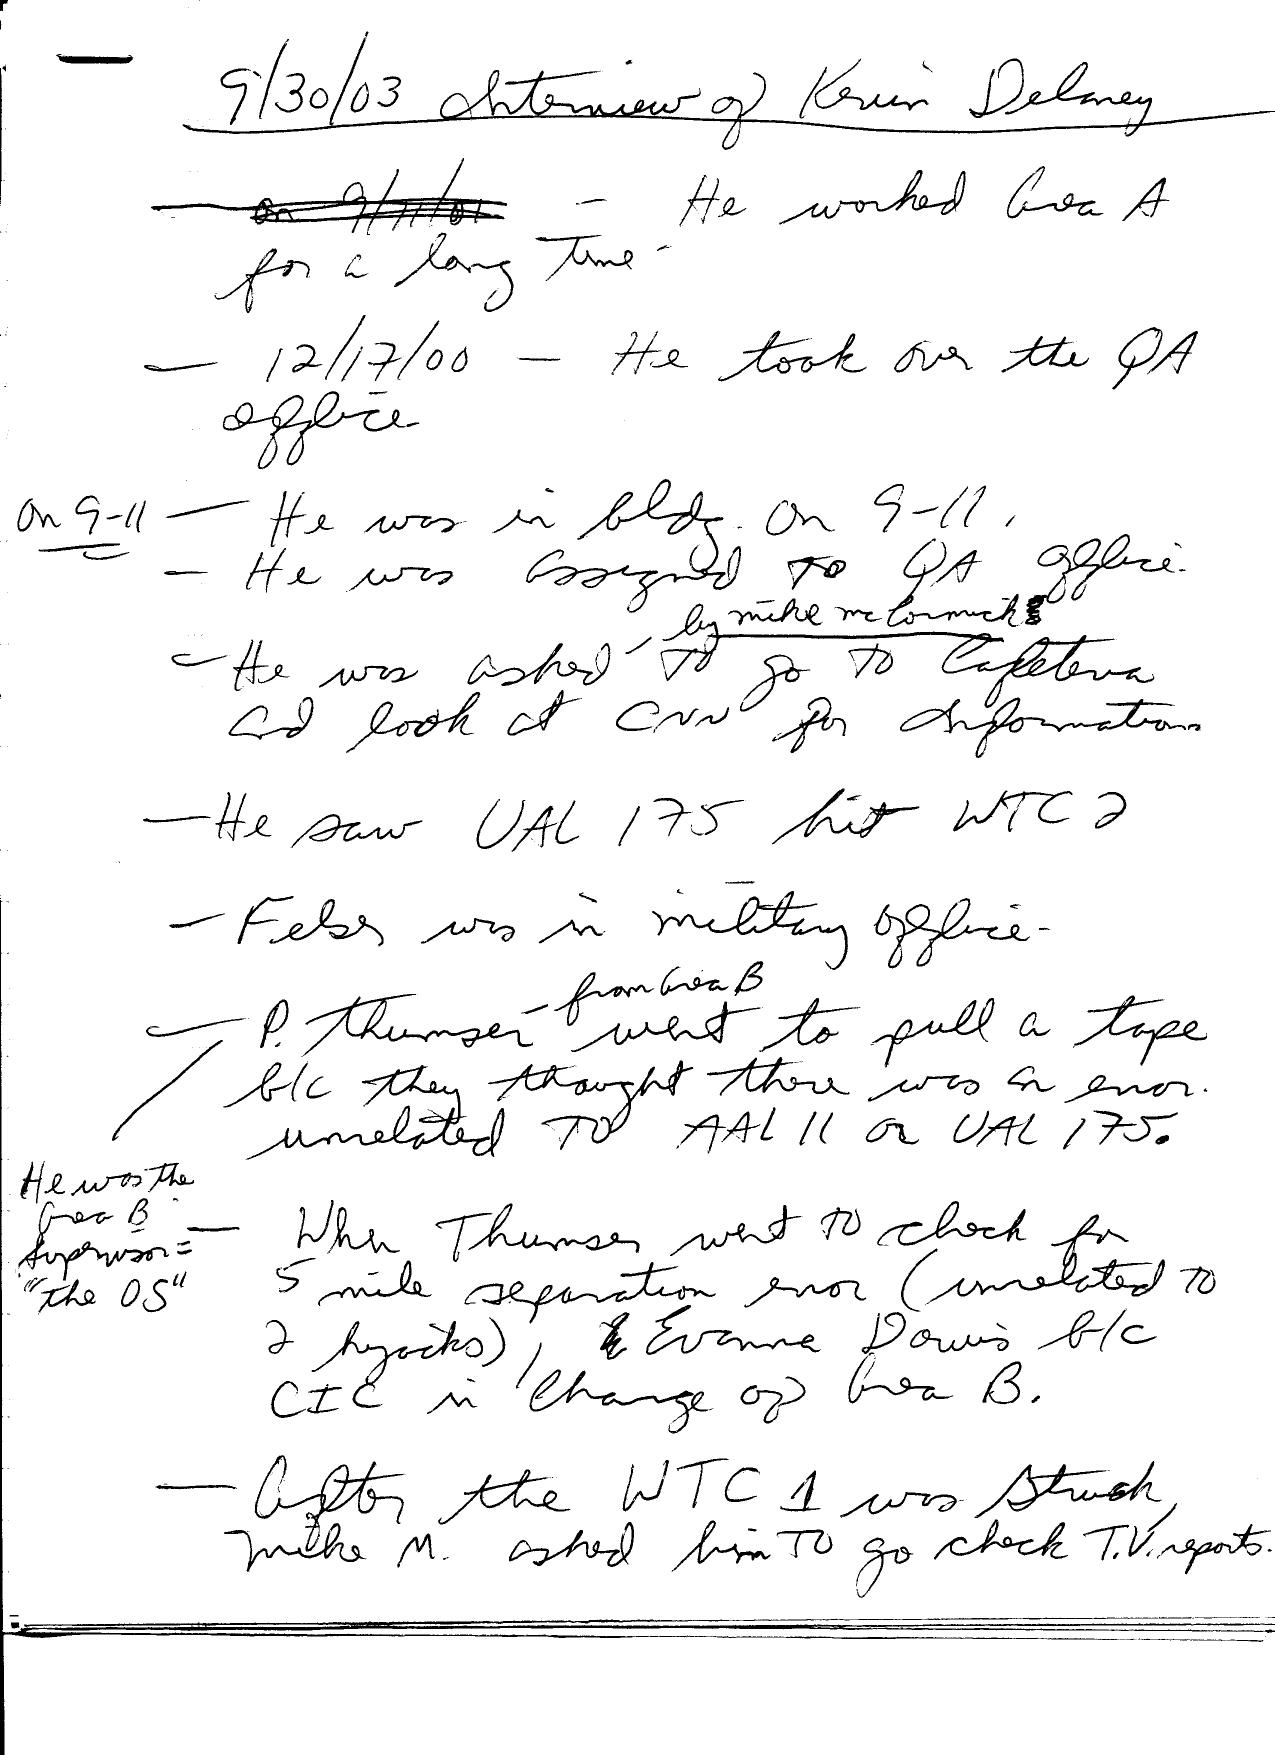 9/30/03 Interview of Kevin Delaney
— on 9/11/01 — He worked Area A
for a long time -
— 12/17/00 — He took over the QA
office
On 9-11 — He was in bldg. on 9-11.
— He was assigned to QA office.
by Mike McCormick
— He was asked to go to Cafeteria
ad look at CNN for information
— He saw UAL 175 hit WTC 2
— Felser was in military office -
- from Area B
— P. Thumser went to pull a tape
b/c they thought there was an error.
unrelated to AAL 11 or UAL 175.
He was the
Area B
Supervisor =
"the OS"
— When Thumser went to check for
5 mile separation error (unrelated to
2 hyjacks), Evanna Dowis b/c
CIC in charge of Area B.
— After the WTC 1 was struck,
Mike M. asked him to go check T.V. reports.